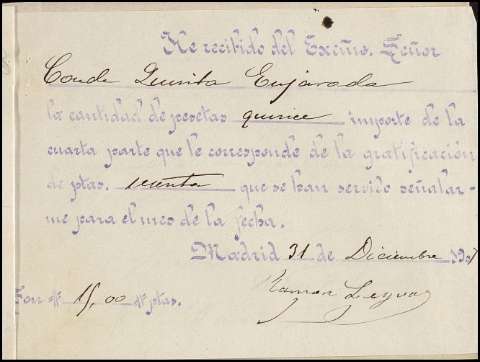 He recibido del Excmo. Señor
Conde Quinta Enjarada
la cantidad de pesetas quince importe de la
cuarta parte que le corresponde de la gratificación
de ptas. sesenta que se han servido señalar-
me para el mes de la fecha.
Madrid 31 de Diciembre 190
Son # 15,00 # ptas.
Ramon Leyva